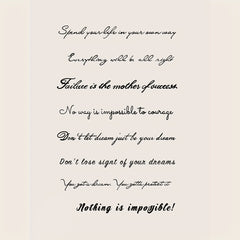 Spend your life in your own way
Everything will be all right
Failure is the mother of success.
No way is impossible to courage
Don't let dream just be your dream
Don't lose signt of your dreams
You got a dream. You gotta protect it
Nothing is impossible!